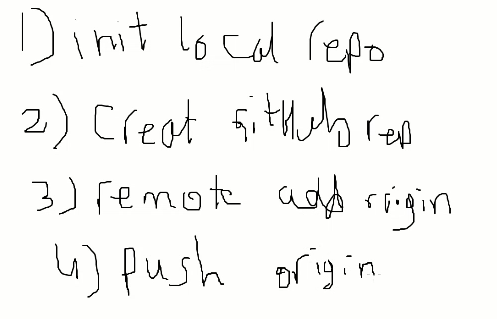 1) init local repo
2) Creat gitHub rep
3) remote add origin
4) push origin